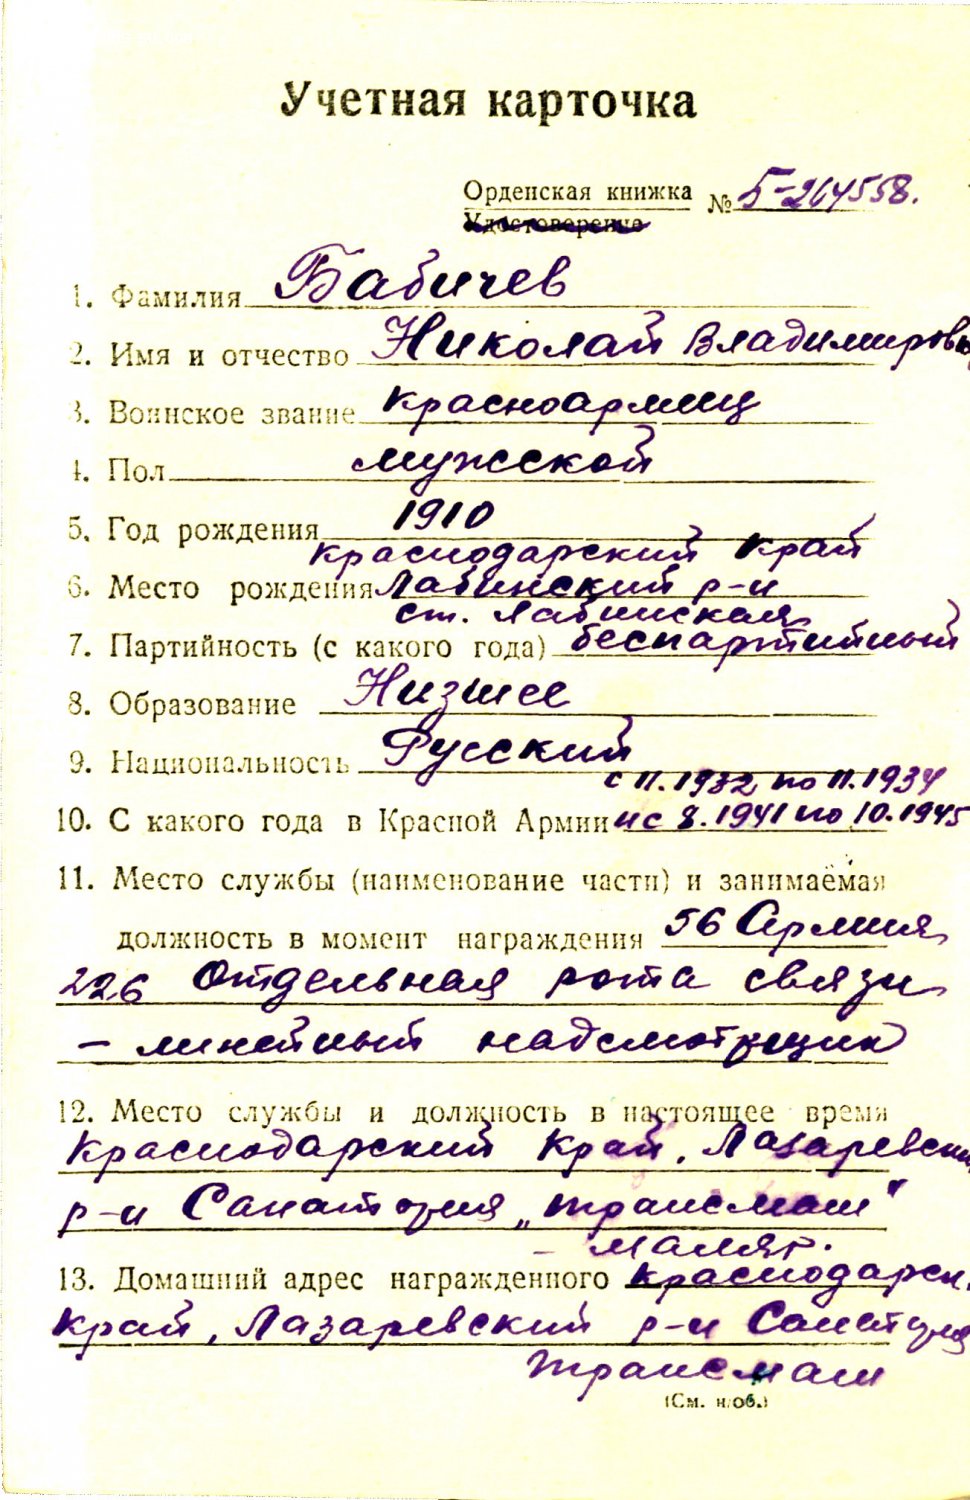 Учетная карточка
Орденская книжка № Б-264558.
Удостоверение
1. Фамилия Бабичев
2. Имя и отчество Николай Владимирович
3. Воинское звание красноармиец
4. Пол мужской
5. Год рождения 1910
Краснодарский край
6. Место рождения Лабинский р-н
ст. Лабинская
7. Партийность (с какого года) беспартийный
8. Образование Низшее
9. Национальность Русский
с 11.1932 по 11.1934
10. С какого года в Красной Армии и с 8.1941 по 10.1945
11. Место службы (наименование части) и занимаемая
должность в момент награждения 56 Армия,
226 Отдельная рота связи
– линейный надсмотрщик
12. Место службы и должность в настоящее время
Краснодарский Край, Лазаревский
р-н Санатория „трансмаш"
– маляр.
13. Домашний адрес награжденного Краснодарск.
край, Лазаревский р-н Санатория
трансмаш
(См. н/об.)